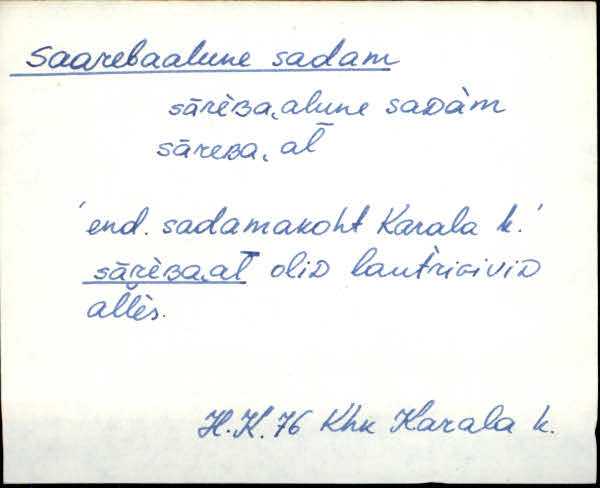 Saarebaalune sadam
sārèʙa‿alune saᴅàm
sāreʙa‿al̄
'end. sadamakoht Karala k.'
sārèʙa‿al̄ oliᴅ lautriɢiviᴅ
alles.
H.K. 76 Khk Karala k.